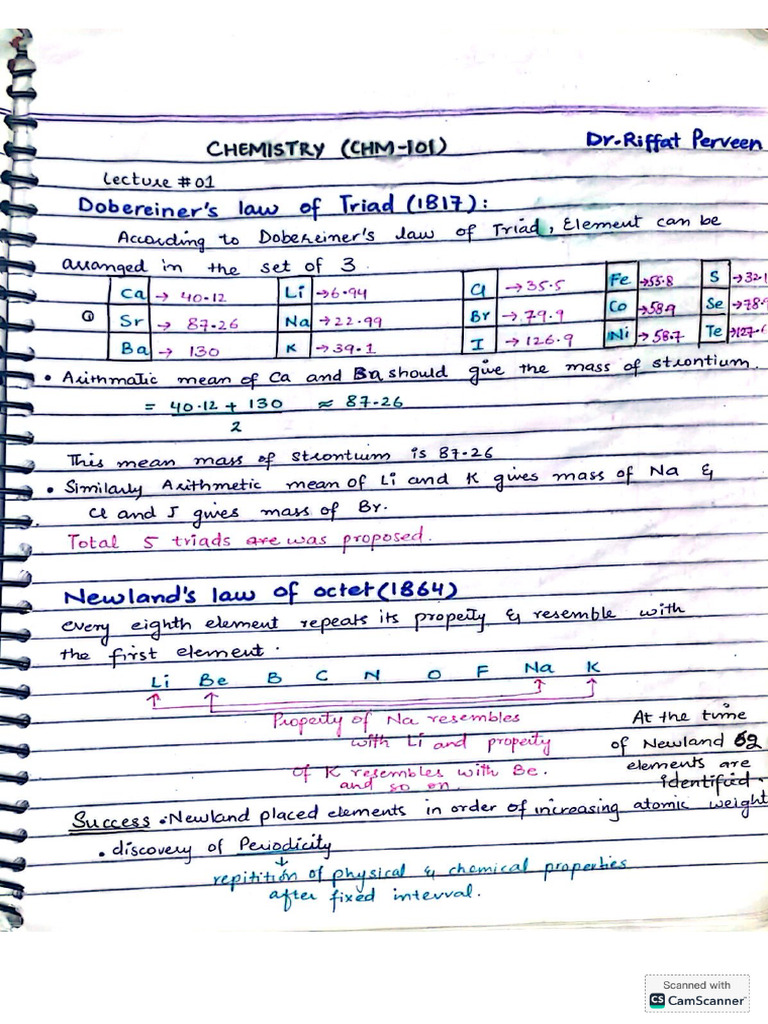 CHEMISTRY (CHM-101)
Dr. Riffat Perveen
Lecture #01
Dobereiner's law of Triad (1817):
According to Dobereiner's law of Triad, Element can be
arranged in the set of 3.
① Ca → 40.12 Li → 6.94 Cl → 35.5 Fe → 55.8 S → 32.1
Sr → 87.26 Na → 22.99 Br → 79.9 Co → 58.9 Se → 78.9
Ba → 130 K → 39.1 I → 126.9 Ni → 58.7 Te → 127.6
• Arithmatic mean of Ca and Ba should give the mass of strontium.
= 40.12 + 130 ≈ 87.26
2
This mean mass of strontium is 87.26
• Similarly Arithmetic mean of Li and K gives mass of Na &
Cl and I gives mass of Br.
Total 5 triads are was proposed.
Newland's law of octet (1864)
every eighth element repeats its property & resemble with
the first element.
Li Be B C N O F Na K
Property of Na resembles
with Li and property
of K resembles with Be.
and so on
At the time
of Newland 62
elements are
identified.
Success • Newland placed elements in order of increasing atomic weight
• discovery of Periodicity
repitition of physical & chemical properties
after fixed interval.
Scanned with
CS CamScanner